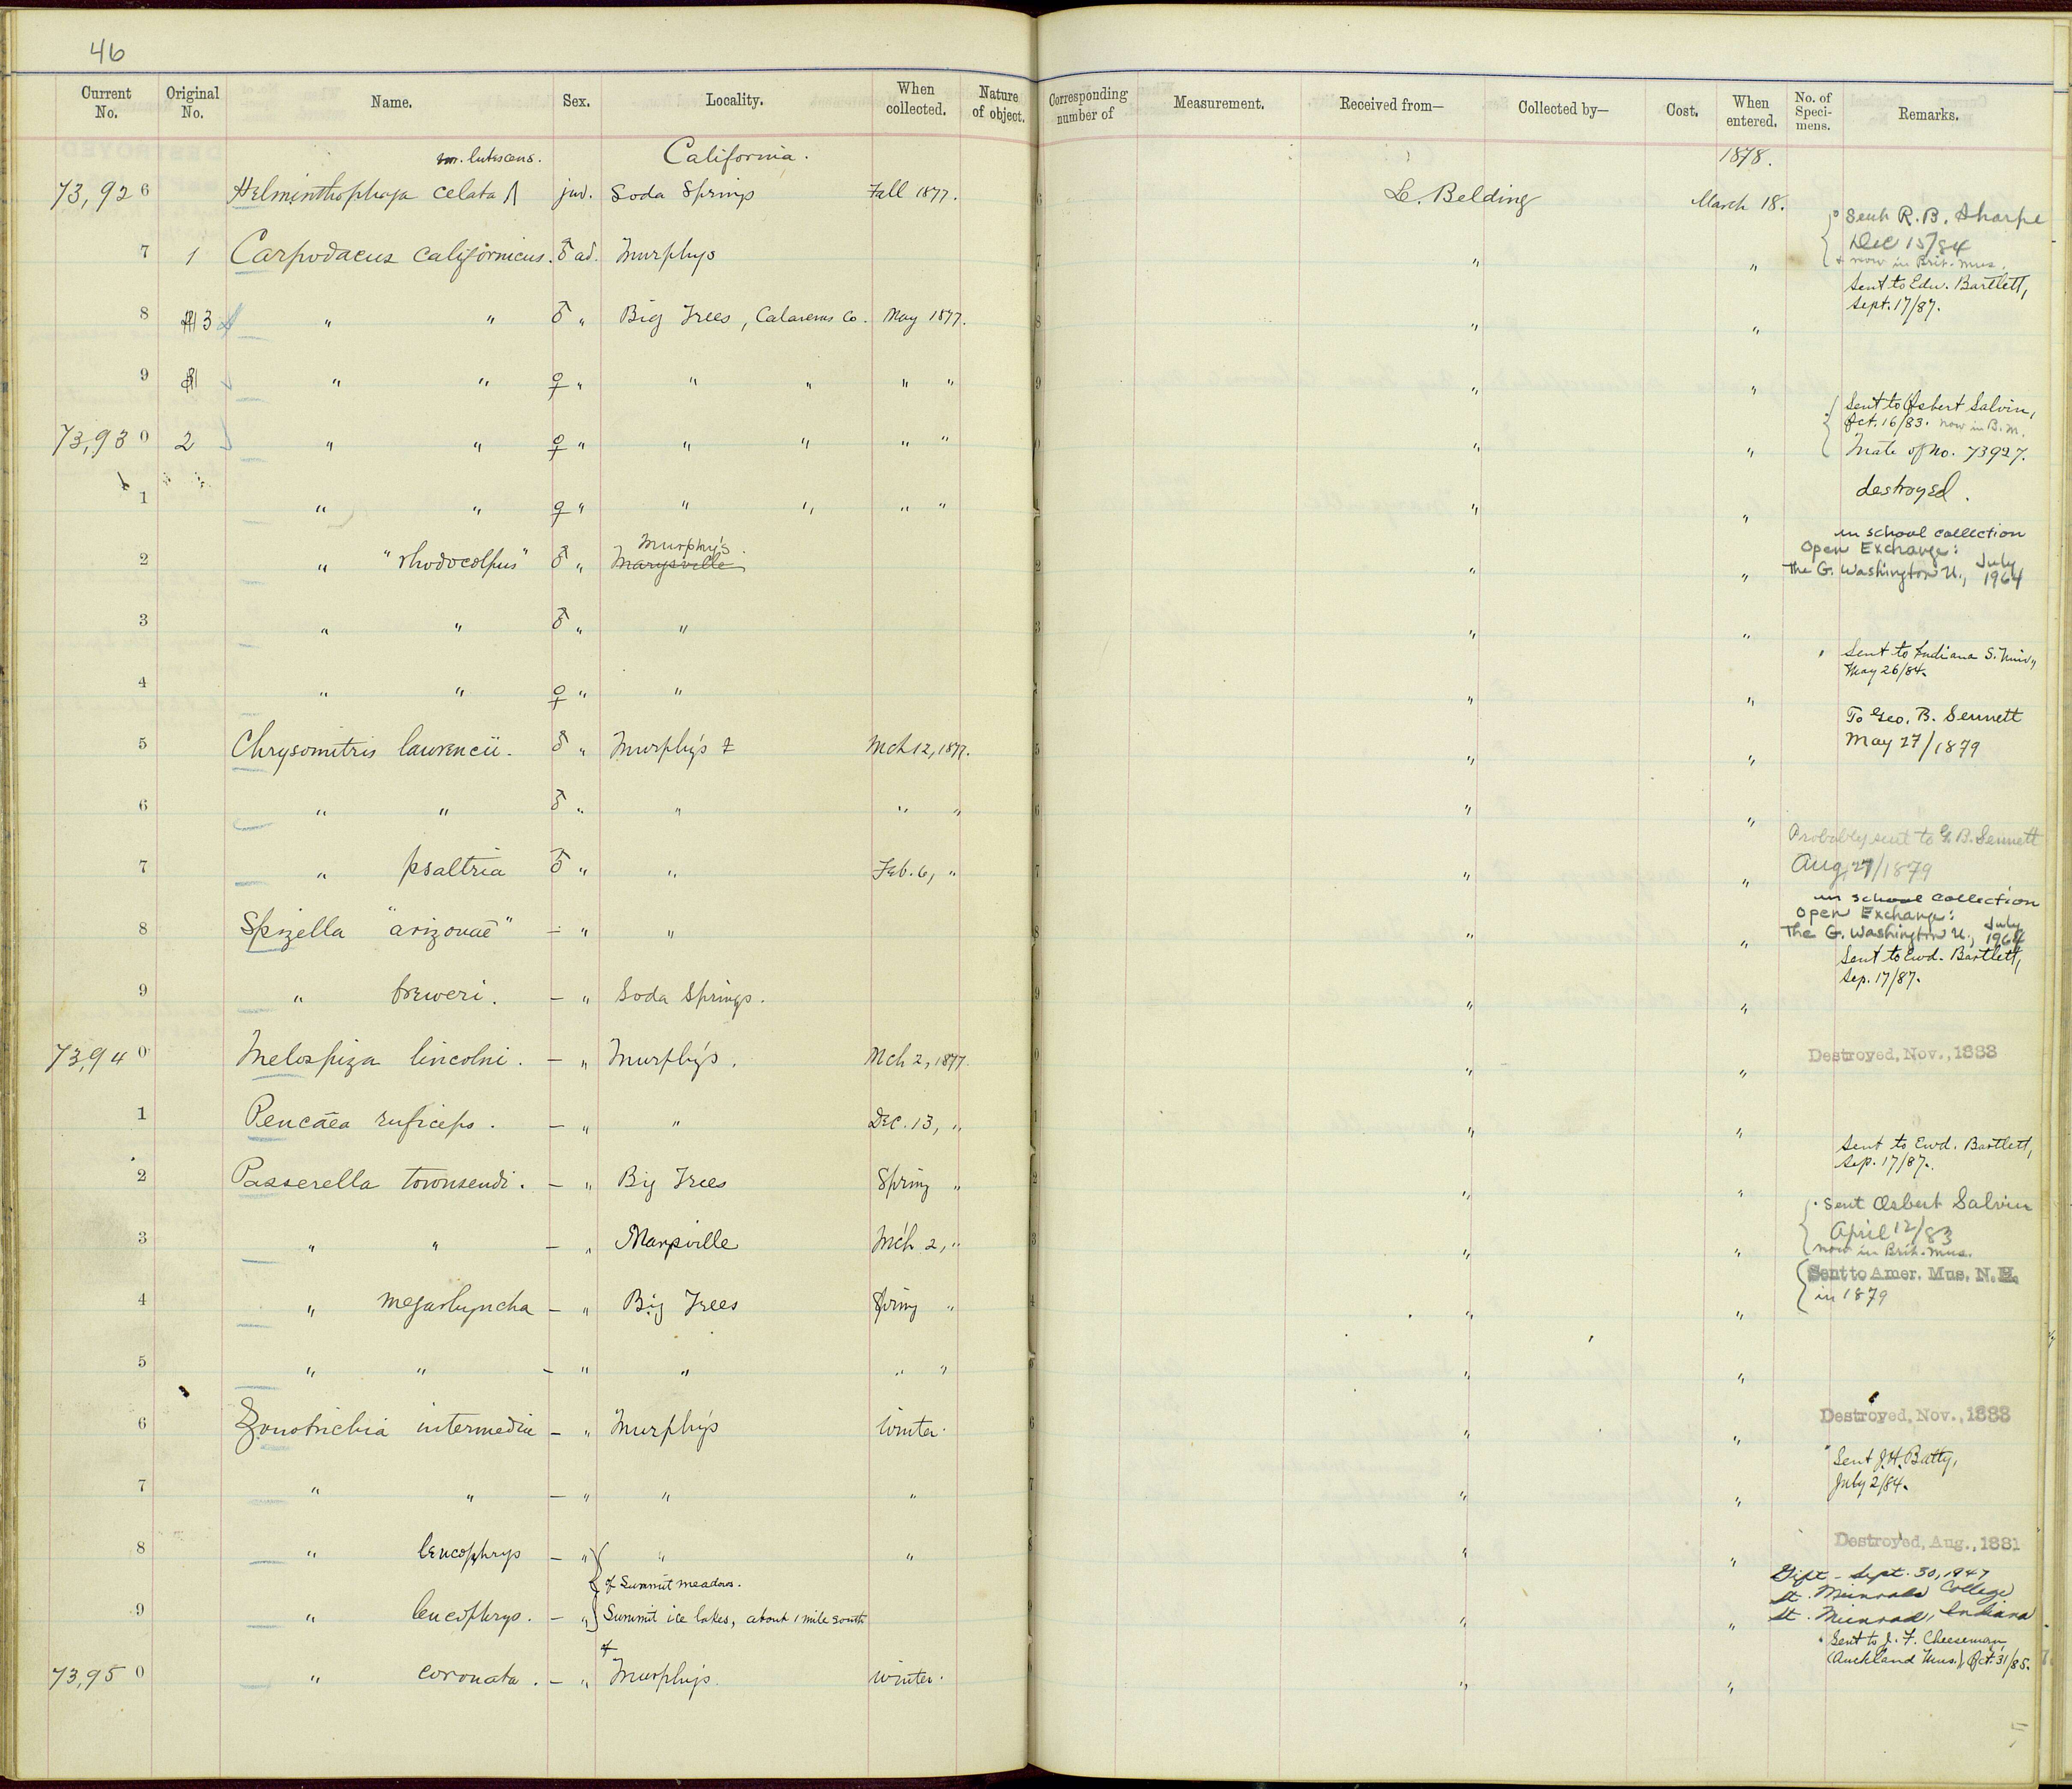 46
Current No. Original No. Name. Sex. Locality. When collected. Nature of object. Corresponding number of Measurement. Received from— Collected by— Cost. When entered. No. of Specimens. Remarks.
var. lutescens. California. 1878.
73,926 Helminthophaga celata ∧ juv. Soda Springs Fall 1877. L. Belding March 18.
7 1 Carpodacus californicus. ♂ ad. Murphys " " Sent R. B. Sharpe
Dec 15/84
+ now in Brit. Mus.
8 3 " " ♂ " Big Trees, Calaveras Co. May 1877. " " Sent to Edw. Bartlett,
Sept. 17/87.
9 1 " " ♀ " " " " " " "
73,930 2 " " ♀ " " " " " " " Sent to Osbert Salvin,
Oct. 16/83. now in B.M.
Mate of No. 73927.
1 " " ♀ " " " " " " " destroyed.
2 " "rhodocolpus" ♂ " Murphy's. Marysville " " in school collection
Open Exchange:
The G. Washington U., July 1964
3 " " ♂ " " " "
4 " " ♀ " " " " Sent to Indiana S. Univ,
May 26/84.
5 Chrysomitris lawrencii. ♂ " Murphy's Mch 12, 1877. " " To Geo. B. Sennett
May 27/1879
6 " " ♂ " " " " " "
7 " psaltria ♂ " " Feb. 6, " " " Probably sent to G. B. Sennett
Aug. 27/1879
8 Spizella "arizonae" – " " " " in school collection
Open Exchange:
The G. Washington U., July 1964
9 " breweri. – " Soda Springs. " " Sent to Ewd. Bartlett,
Sep. 17/87.
73,940 Melospiza lincolni. – " Murphy's. Mch 2, 1877. " " Destroyed, Nov., 1883
1 Peucaea ruficeps. – " " Dec. 13, " " "
2 Passerella townsendi. – " Big Trees Spring " " " Sent to Ewd. Bartlett,
Sep. 17/87.
3 " " – " Marysville Mch 2, " " " Sent Osbert Salvin
April 12/83
now in Brit. Mus.
4 " megarhyncha – " Big Trees Spring " " " Sent to Amer. Mus. N. H.
in 1879
5 " " – " " " " " "
6 Zonotrichia intermedia – " Murphy's Winter. " " Destroyed, Nov., 1883
7 " " – " " " " " Sent J. H. Batty,
July 2/84.
8 " leucophrys – " " " " " Destroyed, Aug., 1881
of Summit meadows.
9 " leucophrys. – " Summit ice lakes, about 1 mile south " " Gift – Sept. 30, 1947
St. Meinrads College
St. Meinrad, Indiana
of
73,950 " coronata. – " Murphy's. Winter. " " Sent to J. F. Cheeseman,
(Auckland Mus.), Oct. 31/85.